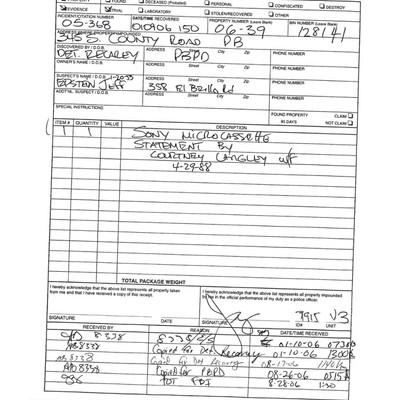 PROPERTY FOUND DECEASED (Probated) PERSONAL CONFISCATED DESTROY
EVIDENCE TRIAL LABORATORY STOLEN/RECOVERED OTHER
INCIDENT/CITATION NUMBER DATE/TIME RECOVERED PROPERTY NUMBER (Leave Blank) BIN NUMBER (Leave Blank)
05-368 010906 150 06-39 128141
ADDRESS WHERE PROPERTY IMPOUNDED
345 S. COUNTY ROAD PB
DISCOVERED BY / D.O.B. ADDRESS City Zip PHONE NUMBER
DET. RECAREY PBPD
OWNER'S NAME / D.O.B. ADDRESS Street City Zip PHONE NUMBER
SUSPECT'S NAME / D.O.B. 1-20-53 ADDRESS Street City Zip PHONE NUMBER
EPSTEIN JEFF 358 El Brillo Rd
ADDT'NL. SUSPECT / D.O.B. ADDRESS Street City Zip PHONE NUMBER
SPECIAL INSTRUCTIONS FOUND PROPERTY CLAIM
90 DAYS NOT CLAIM
ITEM # QUANTITY VALUE DESCRIPTION
1 1 SONY MICROCASSETTE
STATEMENT BY
COURTNEY W/F
4-29-88
TOTAL PACKAGE WEIGHT
I hereby acknowledge that the above list represents all property taken from me and that I have received a copy of this receipt.
I hereby acknowledge that the above list represents all property impounded in the official performance of my duty as a police officer.
SIGNATURE SIGNATURE 7915 V3
RECEIVED BY REASON DATE/TIME RECEIVED
8338 01-10-06 0730
8338 Copied for Det Recarey 01-10-06 1300
8338 Copied for Det Recarey 08-17-06
8338 Copied for PBPD 08-26-06 0515
TOT FBI 8-28-06 1:30